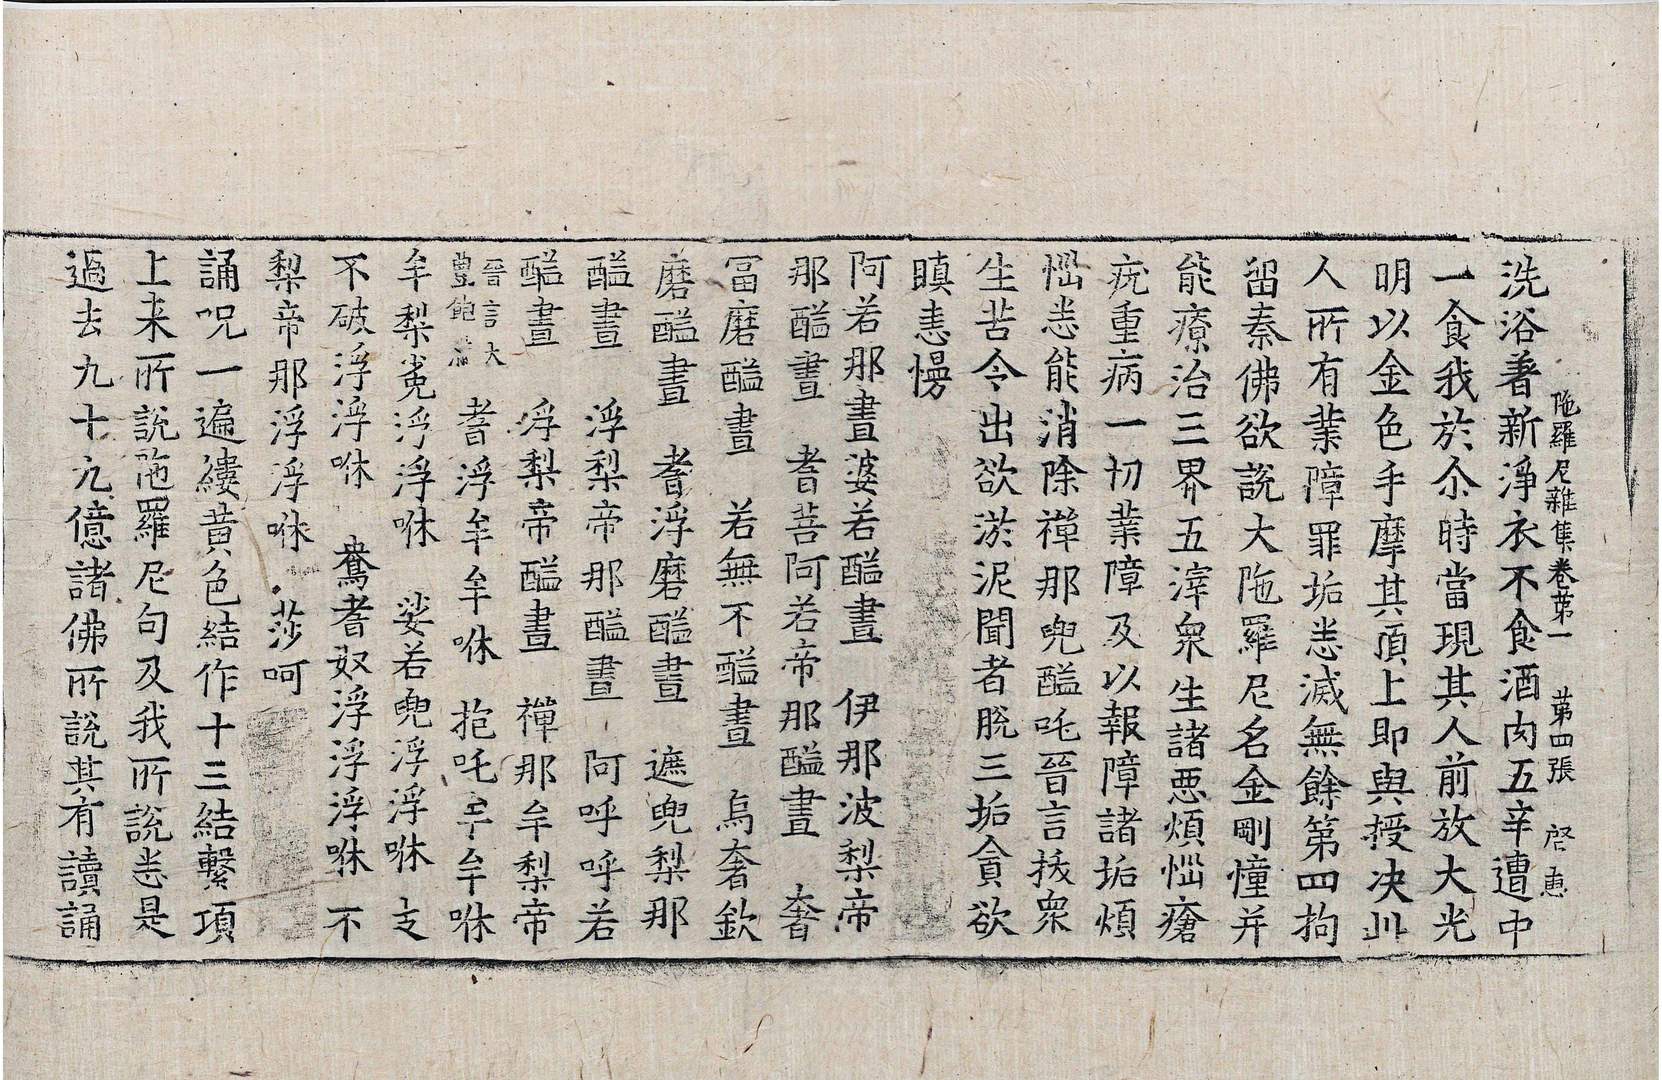 陁羅尼雜集卷苐一　苐四張　启惠
洗浴著新淨衣不食酒肉五辛遭中
一食我於尒時當現其人前放大光
明以金色手摩其頂上即與授决此
人所有業障罪垢悉滅無餘第四拘
留秦佛欲說大陁羅尼名金剛憧并
能療治三界五滓衆生諸惡煩惱瘡
疣重病一切業障及以報障諸垢煩
惱悉能消除禪那兜醯吒晉言拔衆
生苦令出欲淤泥聞者脫三垢貪欲
瞋恚慢
阿若那晝婆若醯晝　伊那波梨帝
那醯晝　耆菩阿若帝那醯晝　奢
冨磨醯晝　若無不醯晝　烏奢欽
磨醯晝　耆浮磨醯晝　遮兜梨那
醯晝　浮梨帝那醯晝　阿呼呼若
醯晝　浮梨帝醯晝　禪那牟梨帝
晉言大豊飽滿　耆浮牟牟咻　抱吒牟牟咻
牟梨菟浮浮咻　娑若兜浮浮咻支
不破浮浮咻　鴦耆奴浮浮浮咻不
梨帝那浮浮咻　莎呵
誦呪一遍縷黃色結作十三結繫項
上来所說陁羅尼句及我所說悉是
過去九十九億諸佛所說其有讀誦